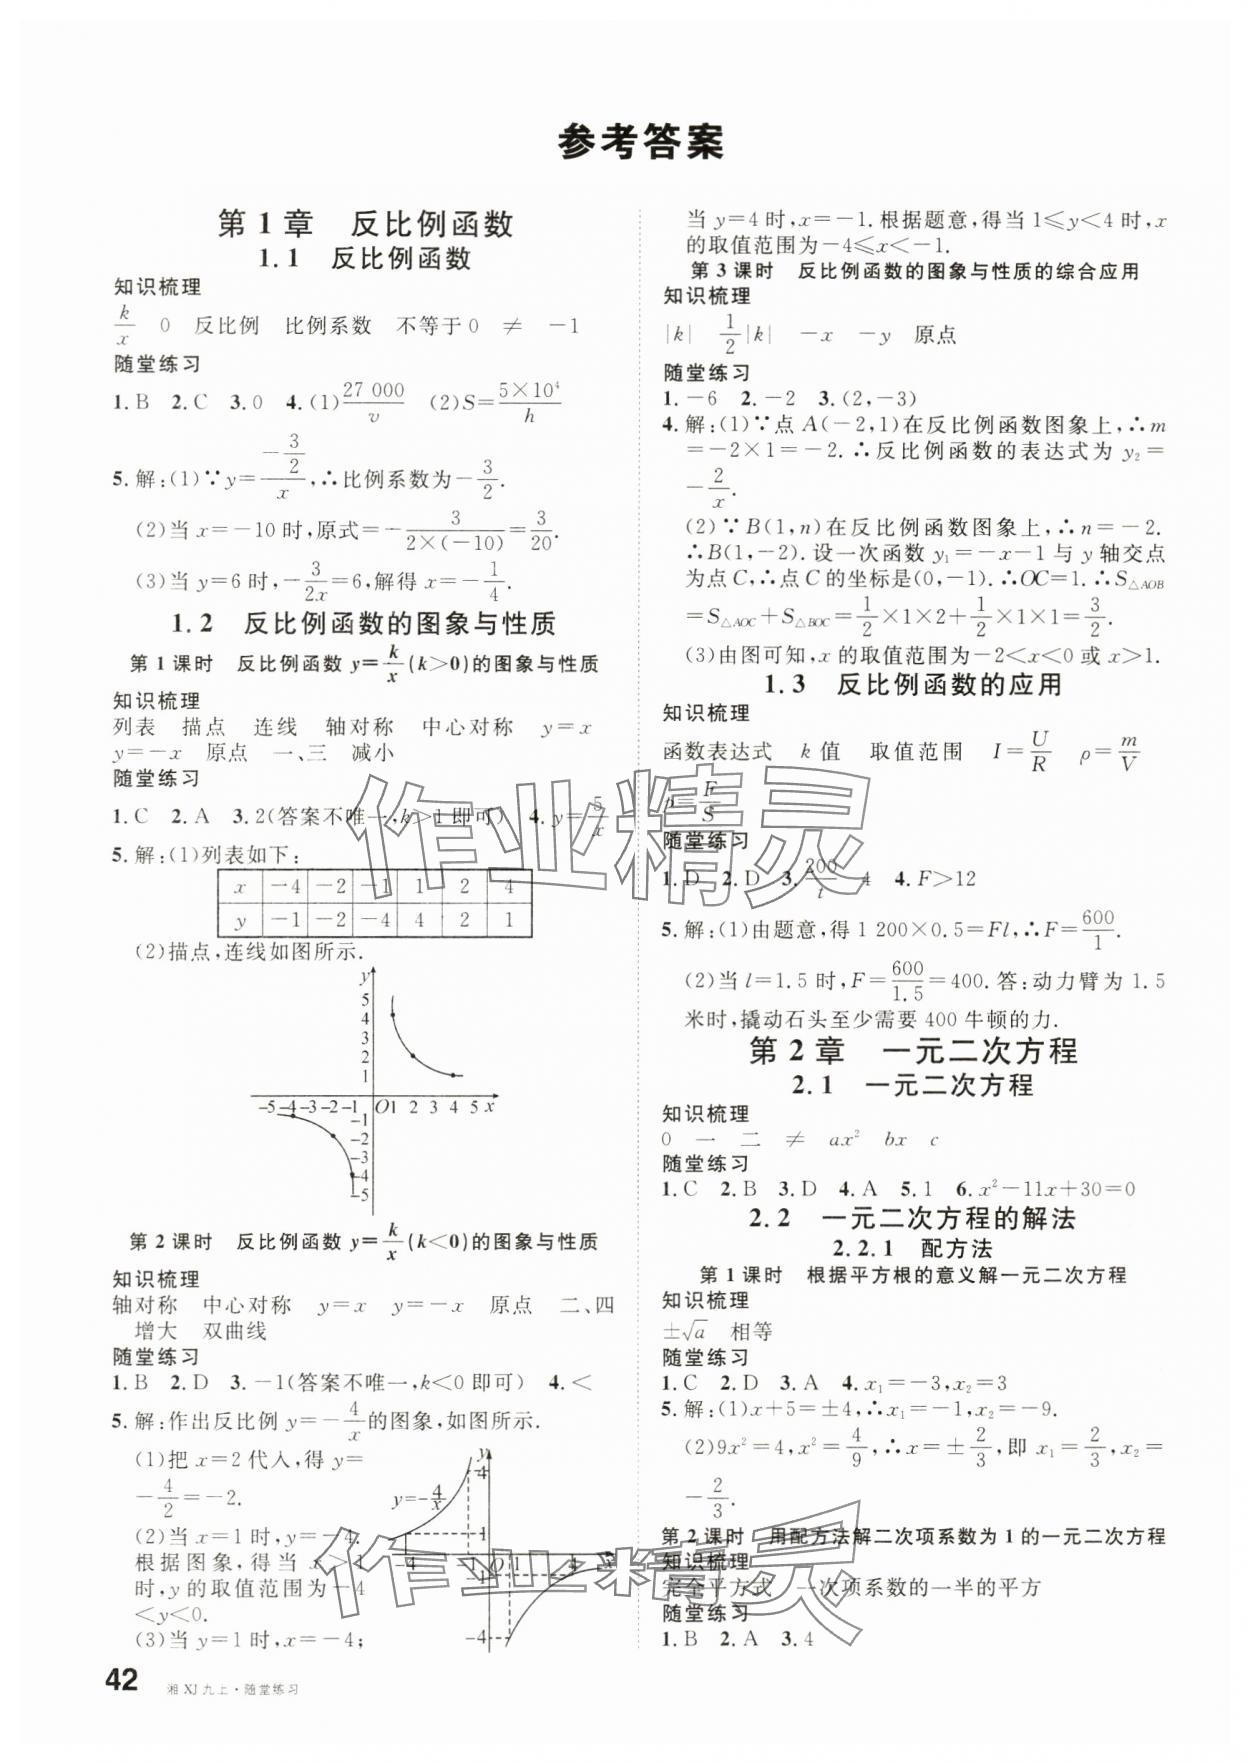 参考答案
第1章 反比例函数
1.1 反比例函数
知识梳理
k/x 0 反比例 比例系数 不等于0 ≠ −1
随堂练习
1.B 2.C 3.0 4.(1)27 000/v (2)S=5×10⁴/h
5.解:(1)∵y=(−3/2)/x,∴比例系数为−3/2.
(2)当x=−10时,原式=−3/(2×(−10))=3/20.
(3)当y=6时,−3/(2x)=6,解得x=−1/4.
1.2 反比例函数的图象与性质
第1课时 反比例函数y=k/x(k>0)的图象与性质
知识梳理
列表 描点 连线 轴对称 中心对称 y=x
y=−x 原点 一、三 减小
随堂练习
1.C 2.A 3.2(答案不唯一,k>1即可) 4.y=5/x
5.解:(1)列表如下:
x −4 −2 −1 1 2 4
y −1 −2 −4 4 2 1
(2)描点,连线如图所示.
y
5
4
3
2
1
−5−4−3−2−1 O1 2 3 4 5 x
−1
−2
−3
−4
−5
第2课时 反比例函数y=k/x(k<0)的图象与性质
知识梳理
轴对称 中心对称 y=x y=−x 原点 二、四
增大 双曲线
随堂练习
1.B 2.D 3.−1(答案不唯一,k<0即可) 4.<
5.解:作出反比例y=−4/x的图象,如图所示.
(1)把x=2代入,得y=
−4/2=−2.
(2)当x=1时,y=−4.
根据图象,得当x>1
时,y的取值范围为−4
<y<0.
(3)当y=1时,x=−4;
y
4
y=−4/x
1
−4 −1 O 1 4 x
−1
−4
42 湘XJ九上·随堂练习
当y=4时,x=−1.根据题意,得当1≤y<4时,x
的取值范围为−4≤x<−1.
第3课时 反比例函数的图象与性质的综合应用
知识梳理
|k| 1/2|k| −x −y 原点
随堂练习
1.−6 2.−2 3.(2,−3)
4.解:(1)∵点A(−2,1)在反比例函数图象上,∴m
=−2×1=−2.∴反比例函数的表达式为y₂=
−2/x.
(2)∵B(1,n)在反比例函数图象上,∴n=−2.
∴B(1,−2).设一次函数y₁=−x−1与y轴交点
为点C,∴点C的坐标是(0,−1).∴OC=1.∴S△AOB
=S△AOC+S△BOC=1/2×1×2+1/2×1×1=3/2.
(3)由图可知,x的取值范围为−2<x<0或x>1.
1.3 反比例函数的应用
知识梳理
函数表达式 k值 取值范围 I=U/R ρ=m/V
p=F/S
随堂练习
1.D 2.D 3.200/t 4 4.F>12
5.解:(1)由题意,得1 200×0.5=Fl,∴F=600/1.
(2)当l=1.5时,F=600/1.5=400.答:动力臂为1.5
米时,撬动石头至少需要400牛顿的力.
第2章 一元二次方程
2.1 一元二次方程
知识梳理
0 一 二 ≠ ax² bx c
随堂练习
1.C 2.B 3.D 4.A 5.1 6.x²−11x+30=0
2.2 一元二次方程的解法
2.2.1 配方法
第1课时 根据平方根的意义解一元二次方程
知识梳理
±√a 相等
随堂练习
1.C 2.D 3.A 4.x₁=−3,x₂=3
5.解:(1)x+5=±4,∴x₁=−1,x₂=−9.
(2)9x²=4,x²=4/9,∴x=±2/3,即x₁=2/3,x₂=
−2/3.
第2课时 用配方法解二次项系数为1的一元二次方程
知识梳理
完全平方式 一次项系数的一半的平方
随堂练习
1.B 2.A 3.4
作业精灵
作业精灵